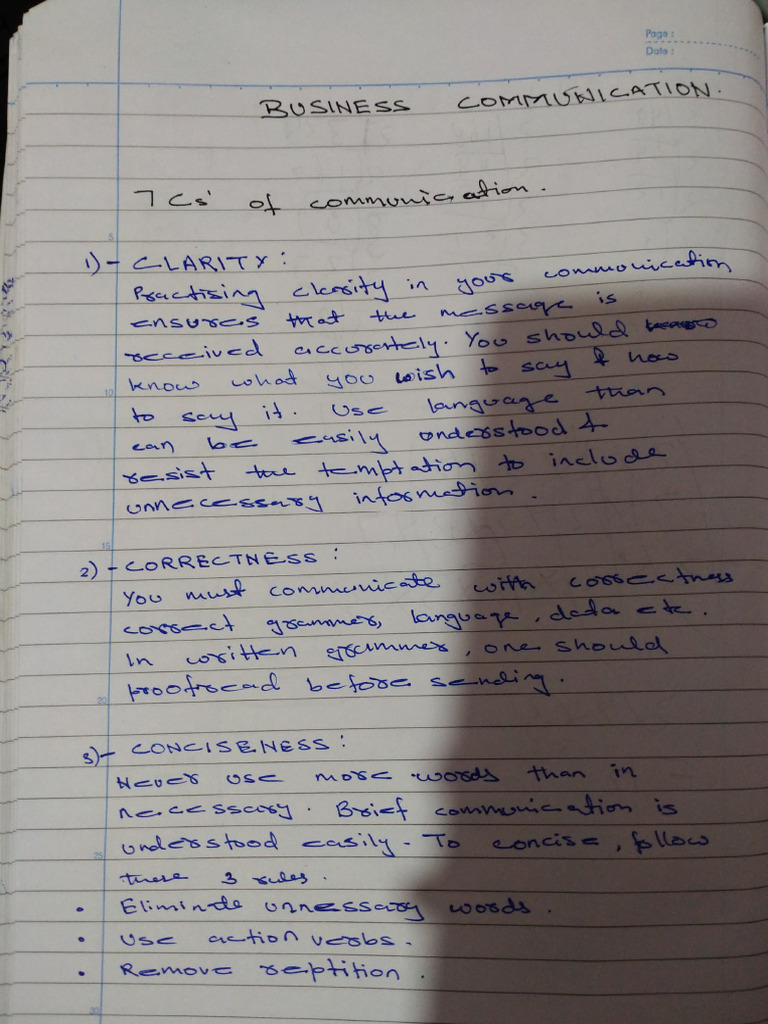 Page :
Date :
BUSINESS COMMUNICATION.
7 Cs' of communication.
5
1)- CLARITY :
Practising clarity in your communication
ensures that the message is
received accurately. You should
know what you wish to say & how
10
to say it. Use language than
can be easily understood &
resist the temptation to include
unnecessary information.
15
2)- CORRECTNESS :
You must communicate with correctness
correct grammer, language, data etc.
In written grammer, one should
proofread before sending.
20
3)- CONCISENESS :
Never use more words than in
necessary. Brief communication is
understood easily - To concise, follow
25
these 3 rules.
• Eliminate unnessary words.
• Use action verbs.
• Remove reptition.
30